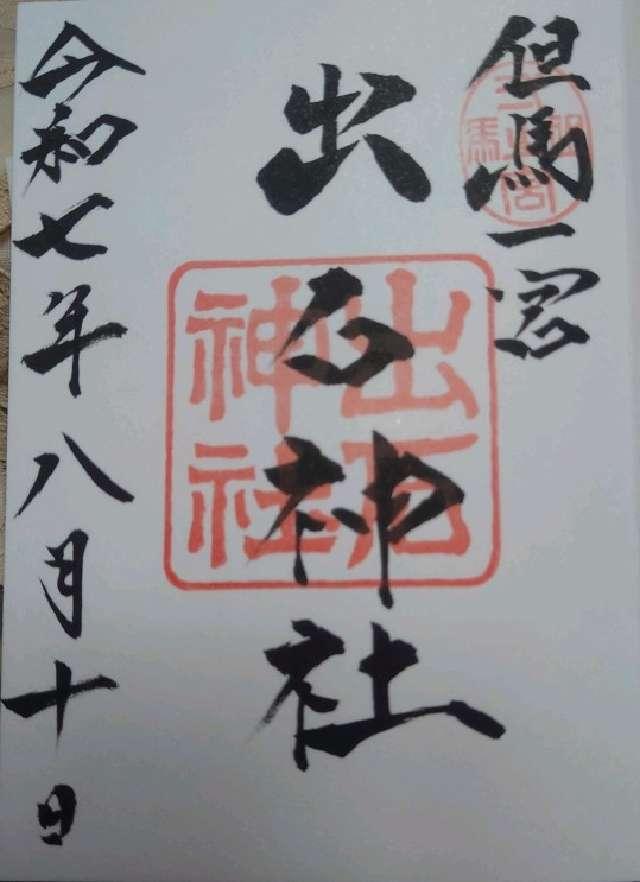 但馬一宮
出石神社
出石神社
令和七年八月十日